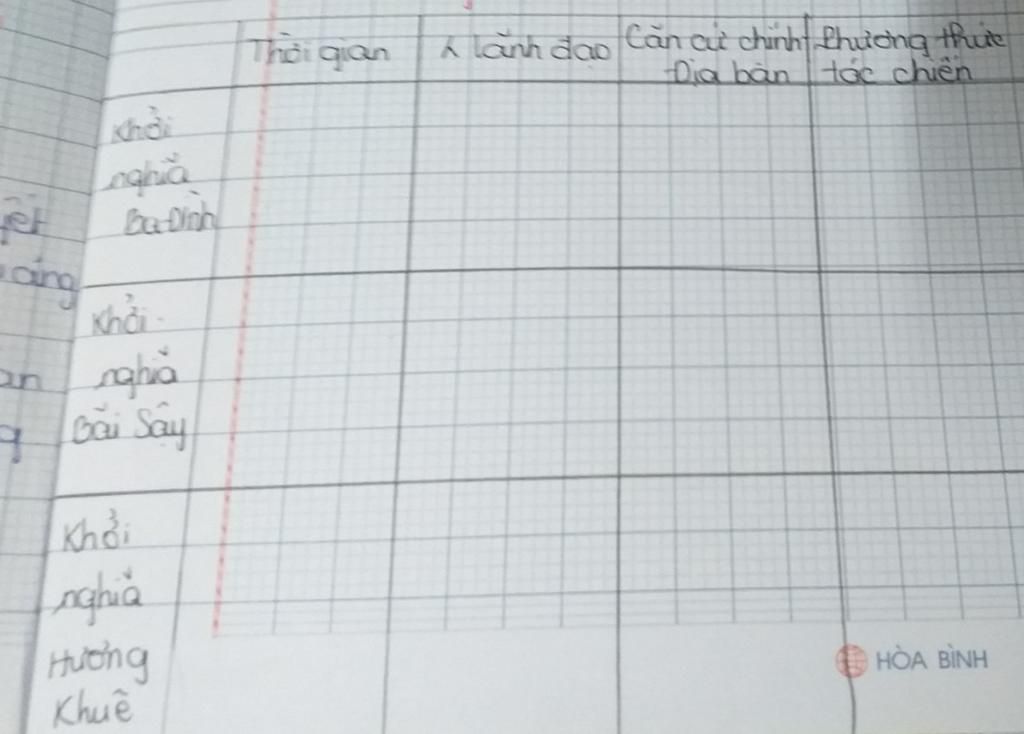 Thời gian
λ lãnh đạo
Căn cứ chính
Địa bàn
Phương thức
tác chiến
Khởi
nghĩa
Ba Đình
Khởi
nghĩa
Bãi Sậy
Khởi
nghĩa
Hương
Khuê
HÒA BÌNH